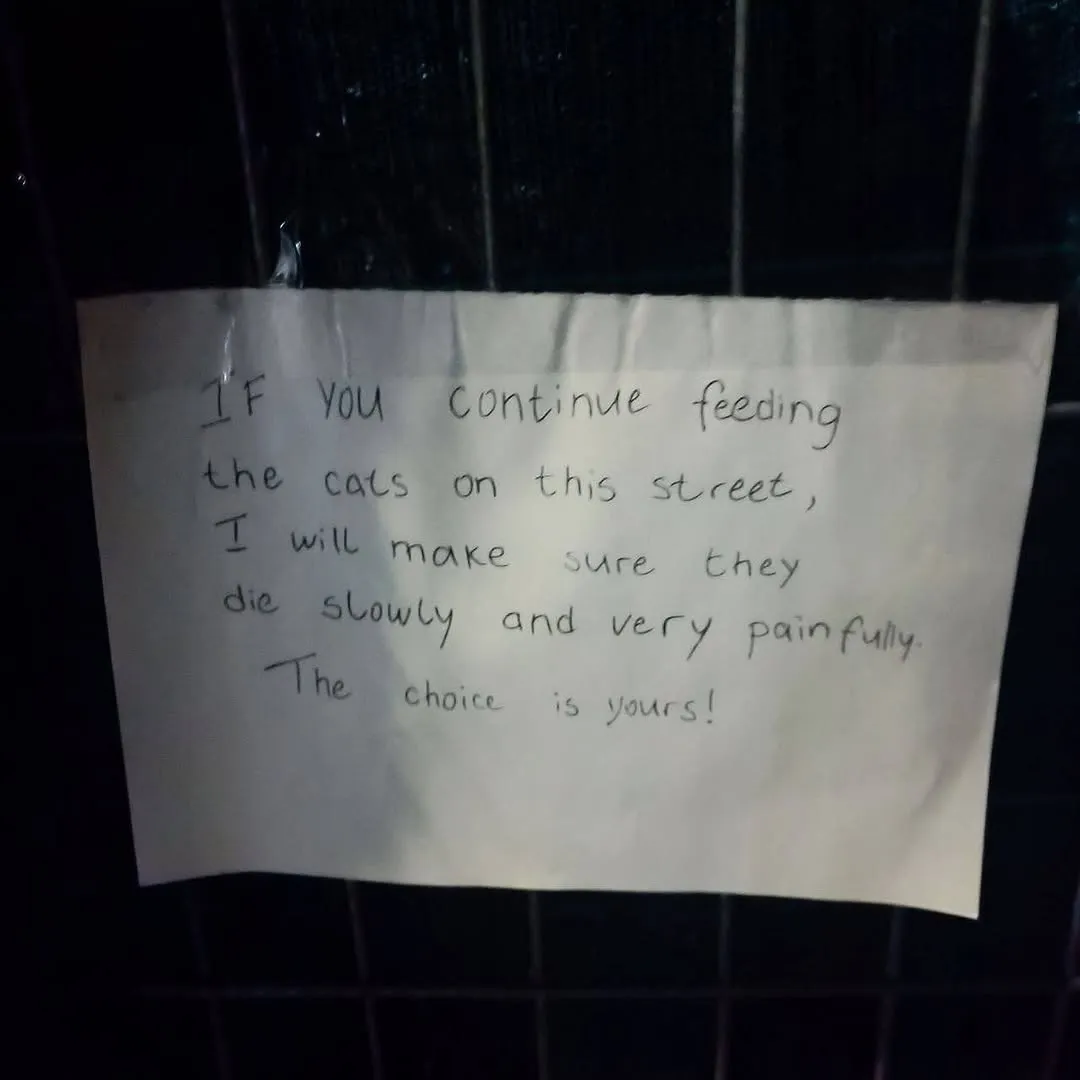 IF YOU continue feeding
the cats on this street,
I will make sure they
die slowly and very painfully.
The choice is yours!